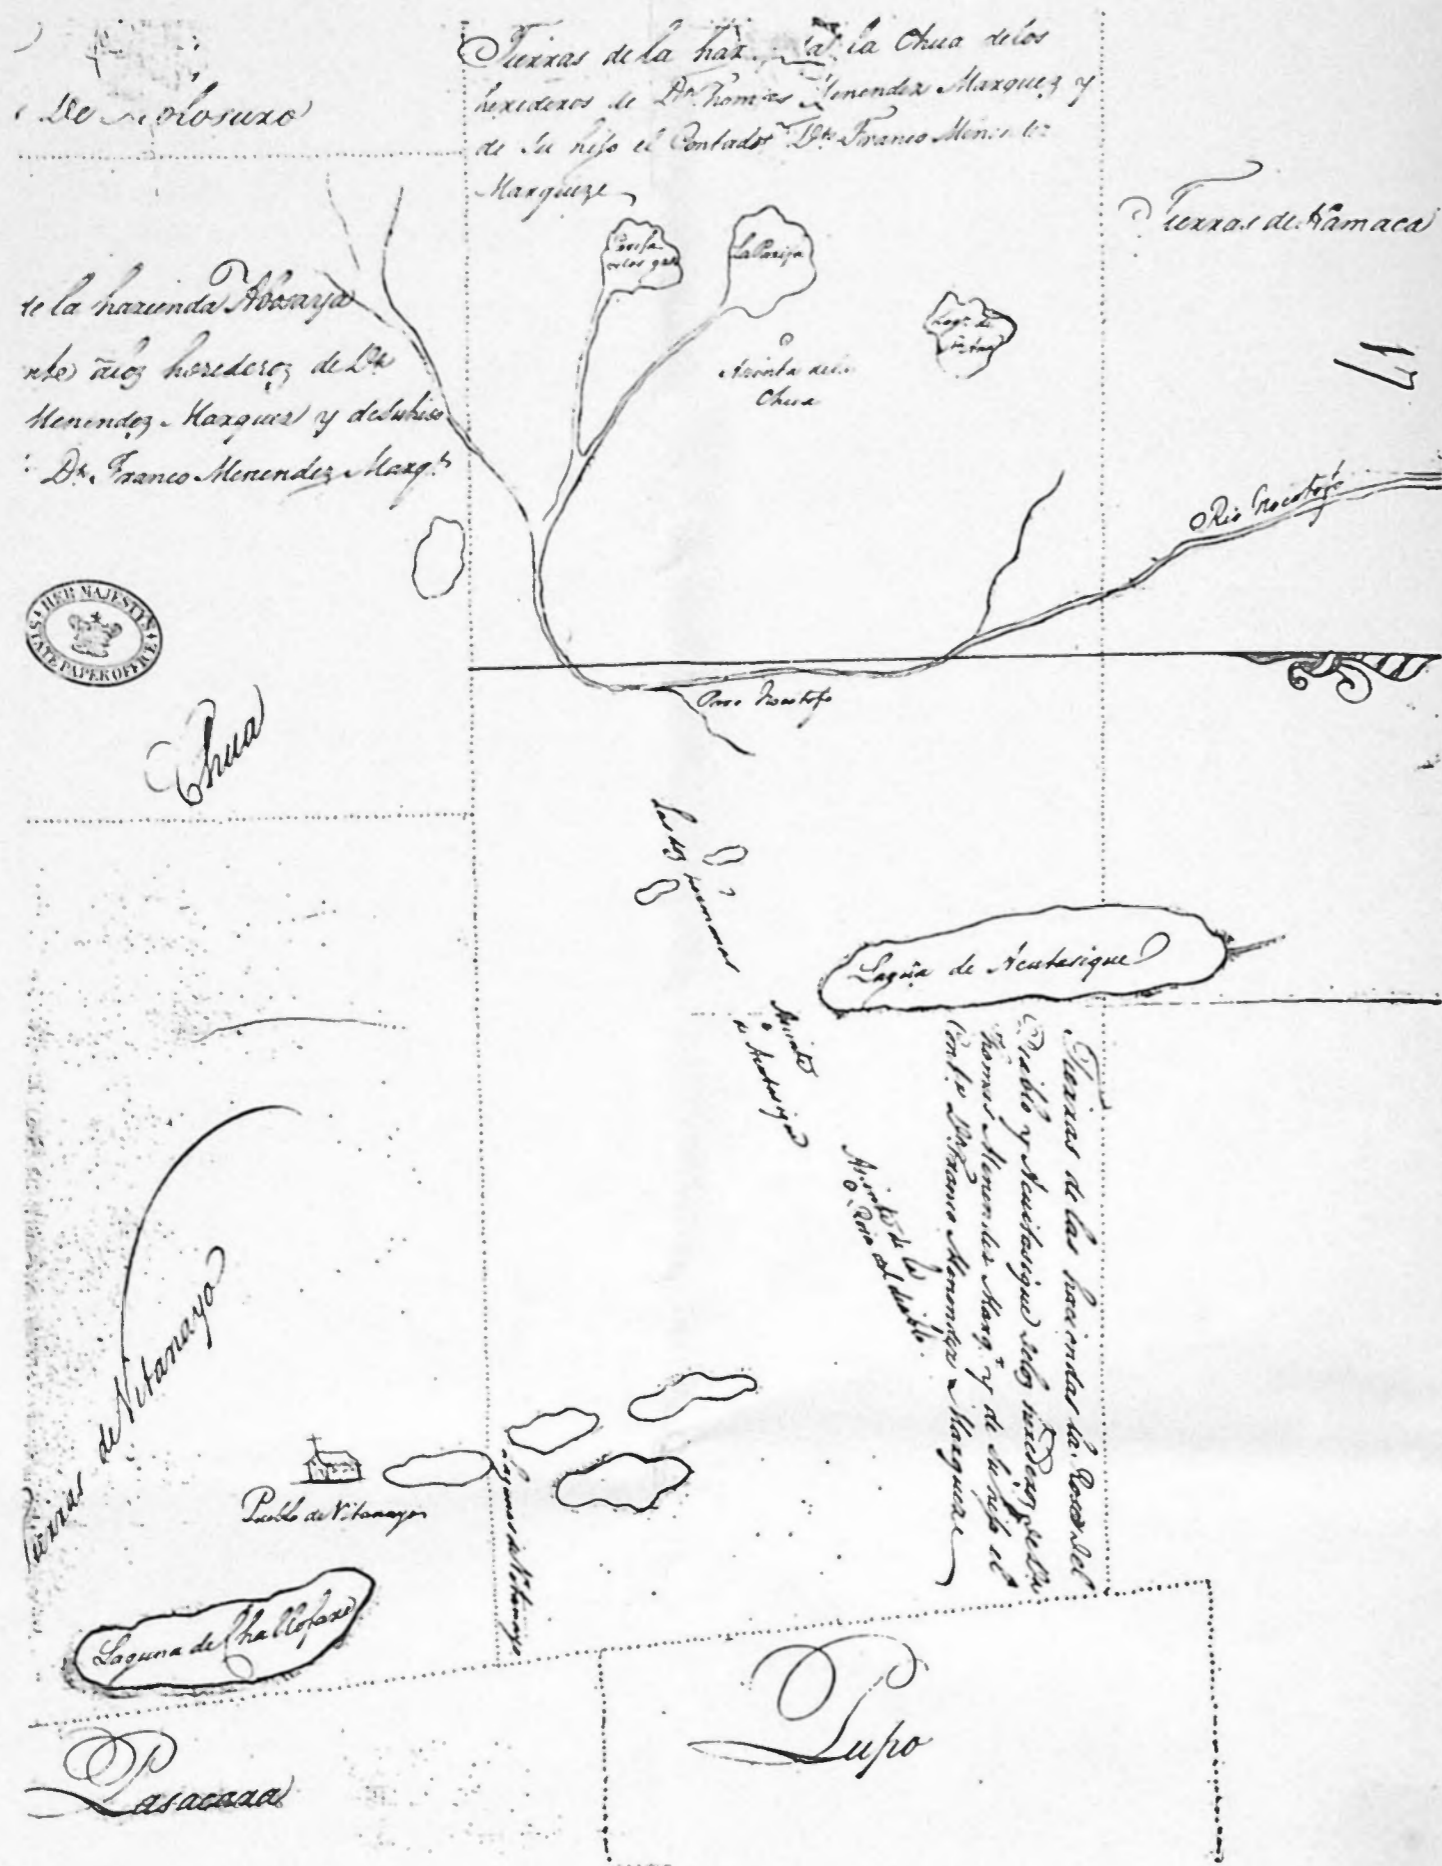 De
Tierras de la la Chua delos
herederos de Dn Thomas Menendez Marquez y
de Su hijo el Contador Dn Franco Menendez
Marqueze
Tierras de Namaca
de la hazienda Abosaya
herederos de Dn
Menendez Marquez y desuhijo
Dn Franco Menendez Marqz
La Parija
Asiento dela
Chua
Rio
HER MAJESTY'S
STATE PAPER OFFICE
Chua
Las dos hermanas
Laguna de Acutasique
Asiento
de Acutasique
Asiento de la
Rosa del diablo
Tierras de las haciendas la Rosa del
Diablo y Acuitasique delos herederos de Dn
Thomas Menendez Marqz y de Su hijo el
Contr Dn Franco Menendez Marqueze
Tierras de Vitanayo
Pueblo de Vitanayo
Lagunas de Vitanayo
Laguna de Challofare
Pasacara
Pupo